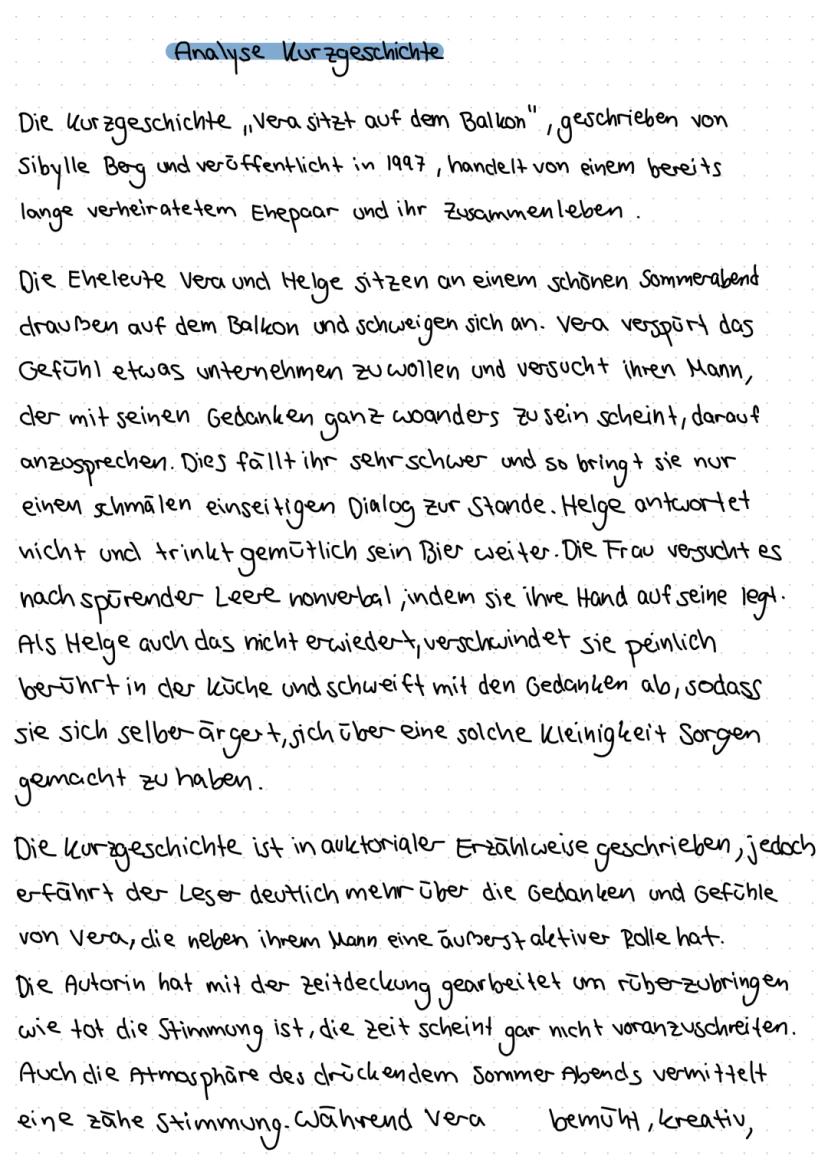 Analyse Kurzgeschichte
Die Kurzgeschichte „Vera sitzt auf dem Balkon", geschrieben von
Sibylle Berg und veröffentlicht in 1997, handelt von einem bereits
lange verheiratetem Ehepaar und ihr Zusammenleben.
Die Eheleute Vera und Helge sitzen an einem schönen Sommerabend
draußen auf dem Balkon und schweigen sich an. Vera verspürt das
Gefühl etwas unternehmen zu wollen und versucht ihren Mann,
der mit seinen Gedanken ganz woanders zu sein scheint, darauf
anzusprechen. Dies fällt ihr sehr schwer und so bringt sie nur
einen schmälen einseitigen Dialog zur Stande. Helge antwortet
nicht und trinkt gemütlich sein Bier weiter. Die Frau versucht es
nach spürender Leere nonverbal, indem sie ihre Hand auf seine legt.
Als Helge auch das nicht erwiedert, verschwindet sie peinlich
berührt in der Küche und schweift mit den Gedanken ab, sodass
sie sich selber ärgert, sich über eine solche Kleinigkeit Sorgen
gemacht zu haben.
Die Kurzgeschichte ist in auktorialer Erzählweise geschrieben, jedoch
erfährt der Leser deutlich mehr über die Gedanken und Gefühle
von Vera, die neben ihrem Mann eine äußerst aktiver Rolle hat.
Die Autorin hat mit der Zeitdeckung gearbeitet um rüberzubringen
wie tot die Stimmung ist, die Zeit scheint gar nicht voranzuschreiten.
Auch die Atmosphäre des drückendem Sommer Abends vermittelt
eine zähe Stimmung. Während Vera bemüht, kreativ,